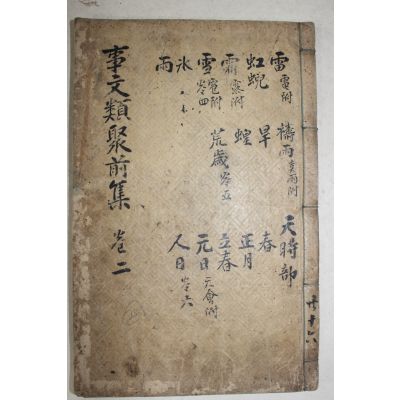 雷 電附
虹蜺
霜 露附
雪 雹附 卷四
氷
雨
禱雨 喜雨附
旱
蝗
荒歲 卷五
天時部
春
正月
立春
元日
人日 卷六
事文類聚前集 卷二
共十六